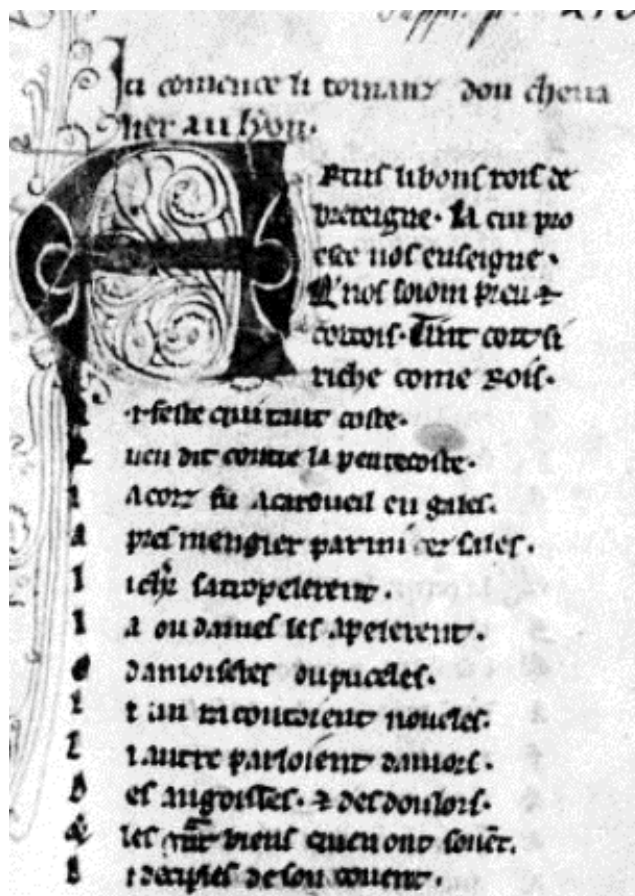 Ci comence li romanz dou cheva
lier au lyon.
Artus li bons rois de
breteigne. La cui pro
esce nos enseigne.
Q' nos soiom preu &
cortois. Tint cort si
riche come rois.
A i feste qui tant coste.
Q ueu dit contre la pentecoste.
l a corz fu a caroueil en gales.
a pres mengier parmi cez sales.
l i chr satropelerent.
l a ou dames les apelerent.
o damoiseles ou puceles.
l i un racontoient noueles.
l i autre parloient damors.
d es angoisses. & des dolors.
& des biens quen ont souent.
l i deciples de son couent.